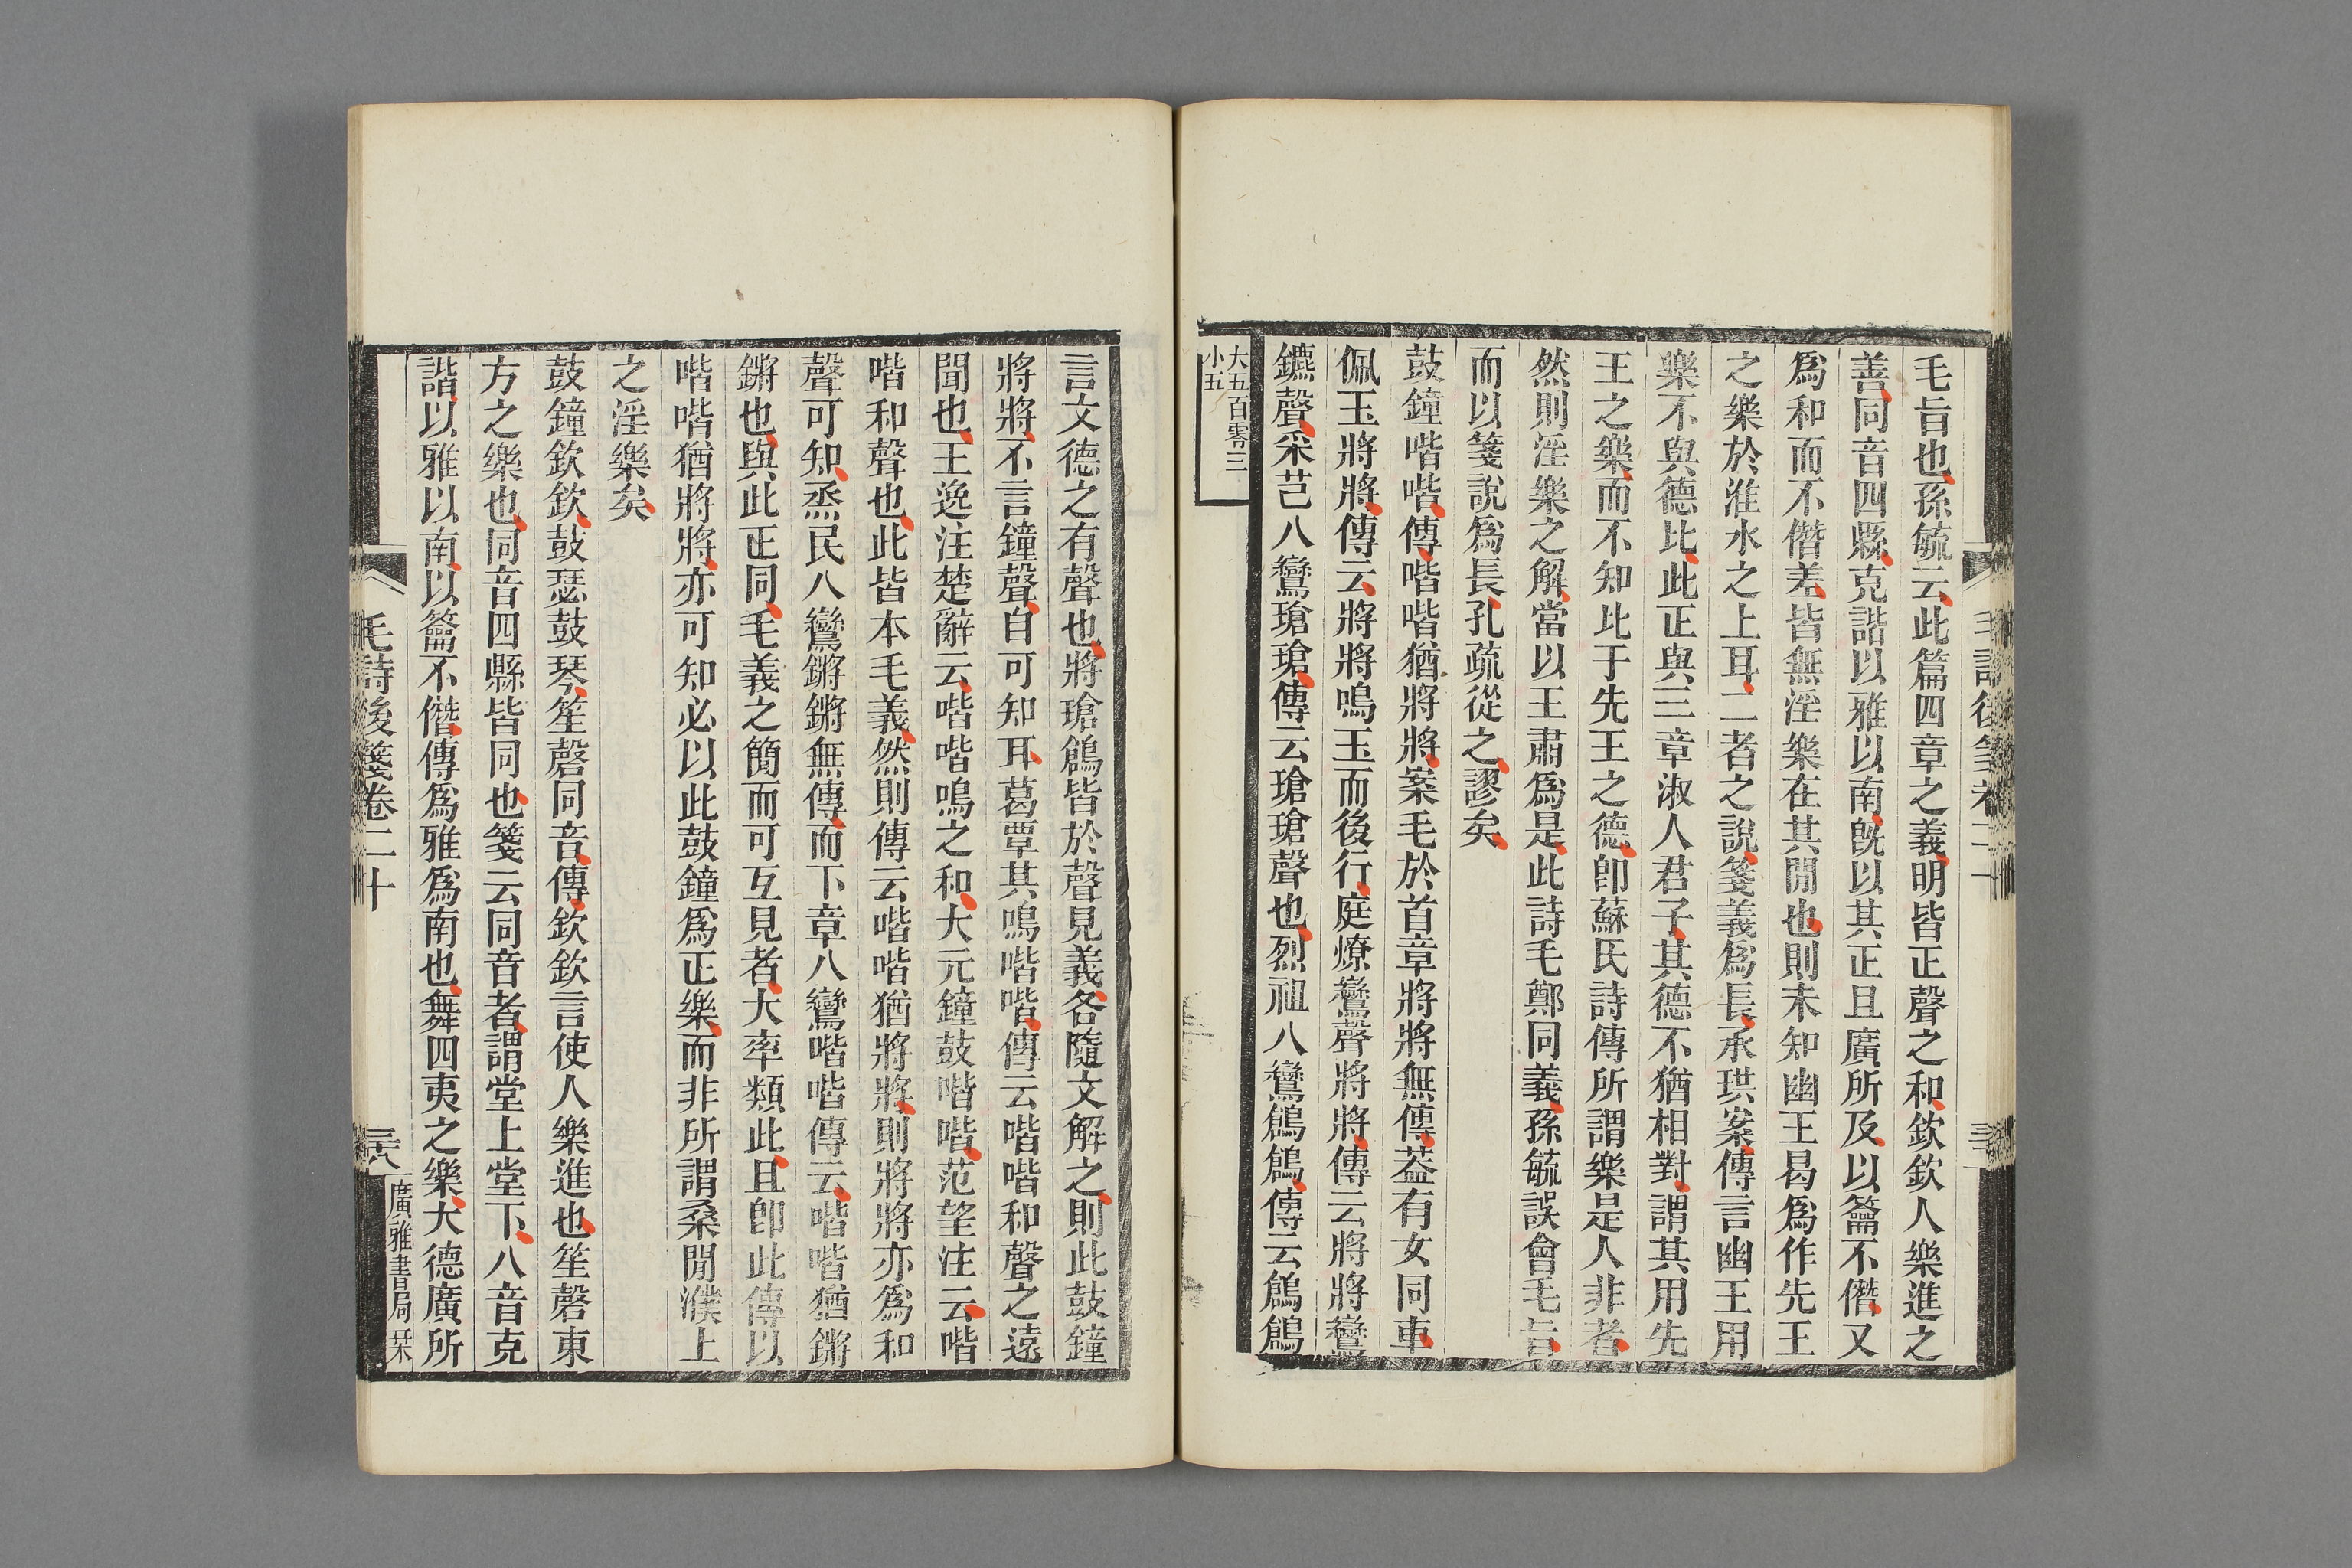 毛旨也孫毓云此篇四章之義明皆正聲之和欽欽人樂進之
善同音四縣克諧以雅以南旣以其正且廣所及以籥不僭又
爲和而不僭差皆無淫樂在其閒也則未知幽王曷爲作先王
之樂於淮水之上耳二者之說箋義爲長承珙案傳言幽王用
樂不與德比此正與三章淑人君子其德不猶相對謂其用先
王之樂而不知比于先王之德卽蘇氏詩傳所謂樂是人非者
然則淫樂之解當以王肅爲是此詩毛鄭同義孫毓誤會毛旨
而以箋說爲長孔疏從之謬矣
鼓鐘喈喈傳喈喈猶將將案毛於首章將將無傳葢有女同車
佩玉將將傳云將將鳴玉而後行庭燎鸞聲將將傳云將將鸞
鑣聲采芑八鸞瑲瑲傳云瑲瑲聲也烈祖八鸞鶬鶬傳云鶬鶬
大五百零三
小五
言文德之有聲也將瑲鶬皆於聲見義各隨文解之則此鼓鐘
將將不言鐘聲自可知耳葛覃其鳴喈喈傳云喈喈和聲之遠
聞也王逸注楚辭云喈喈鳴之和大元鐘鼓喈喈范望注云喈
喈和聲也此皆本毛義然則傳云喈喈猶將將則將將亦爲和
聲可知烝民八鸞鏘鏘無傳而下章八鸞喈喈傳云喈喈猶鏘
鏘也與此正同毛義之簡而可互見者大率類此且卽此傳以
喈喈猶將將亦可知必以此鼓鐘爲正樂而非所謂桑閒濮上
之淫樂矣
鼓鐘欽欽鼓瑟鼓琴笙磬同音傳欽欽言使人樂進也笙磬東
方之樂也同音四縣皆同也箋云同音者謂堂上堂下八音克
諧以雅以南以籥不僭傳爲雅爲南也舞四夷之樂大德廣所
毛詩後箋卷二十
三六
廣雅書局栞